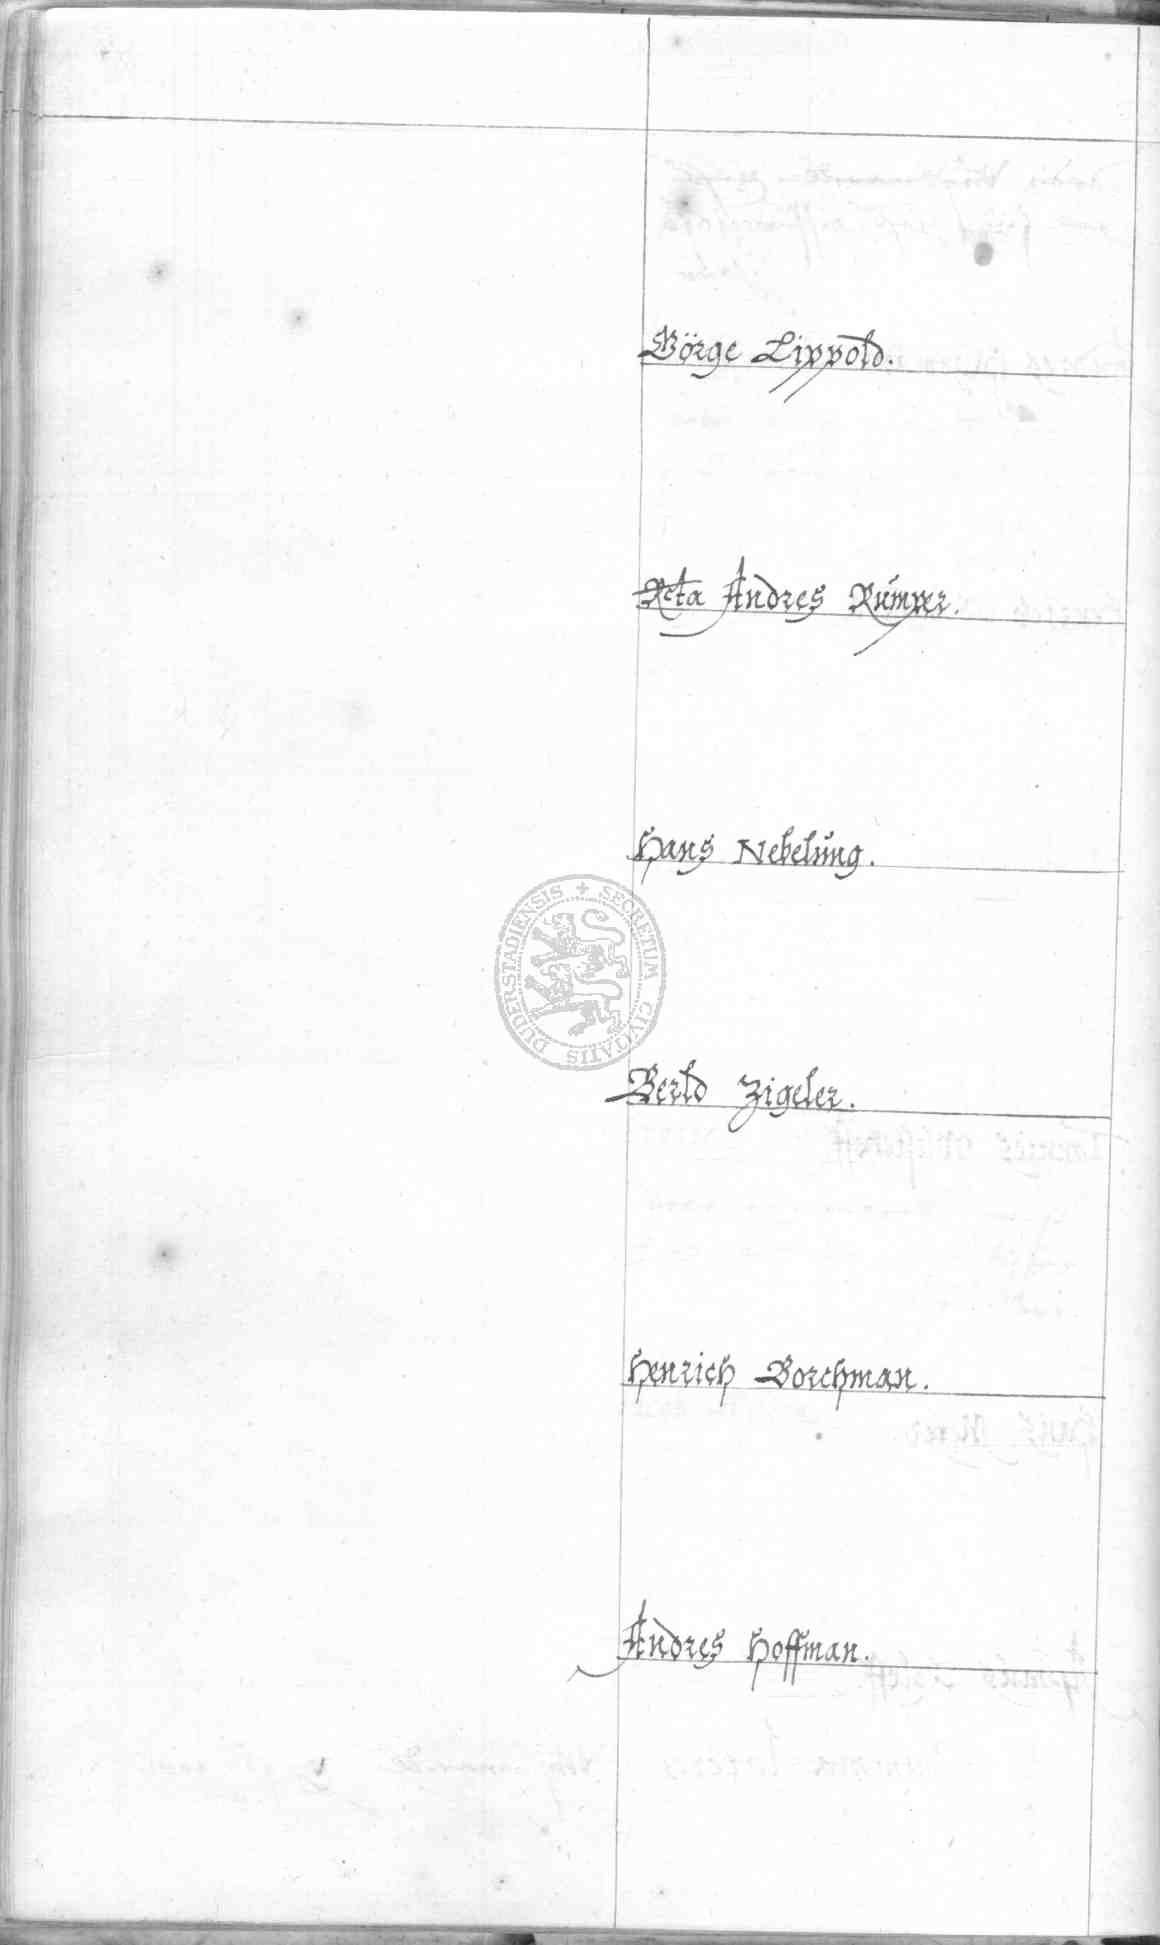 Börge Lippold.
Rcta Andres Rümper.
Hans Nebelung.
SECRETUM CIVITATIS DUDERSTADIENSIS
Berld Zigeler.
Henrich Borchman.
Andres Hoffman.